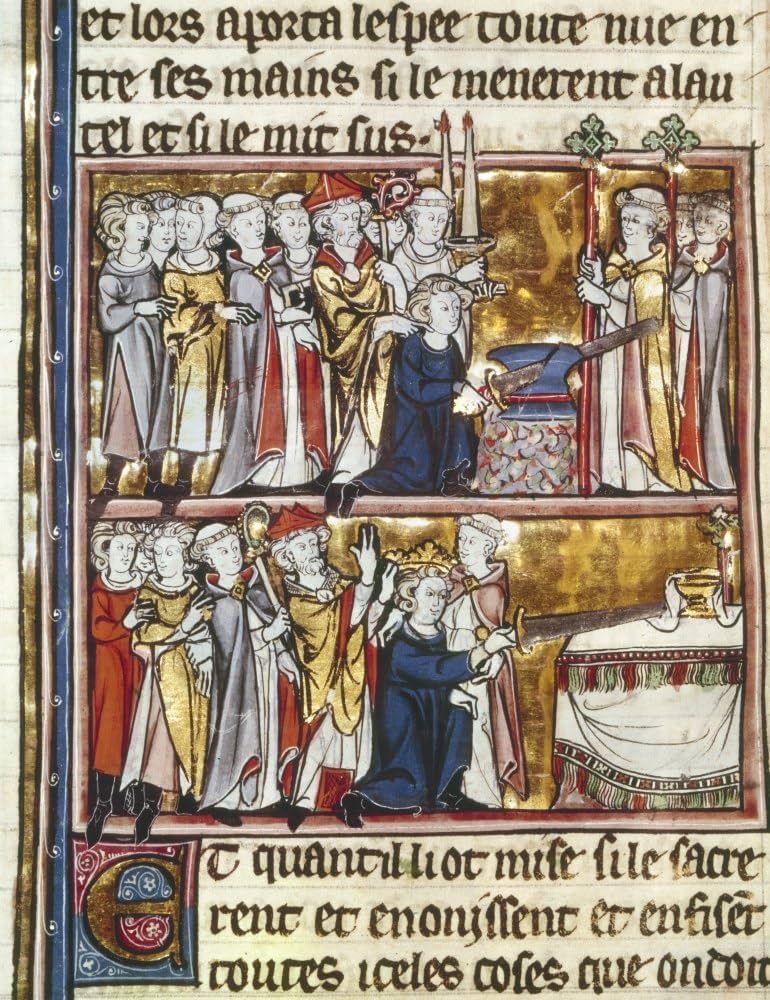 et lors aporta lespee toute nue en
tre ses mains si le menerent alau
tel et si le mit sus.
Et quant il li ot mise si le sacre
rent et enoinssent et en fisent
toutes iceles coses que on doit